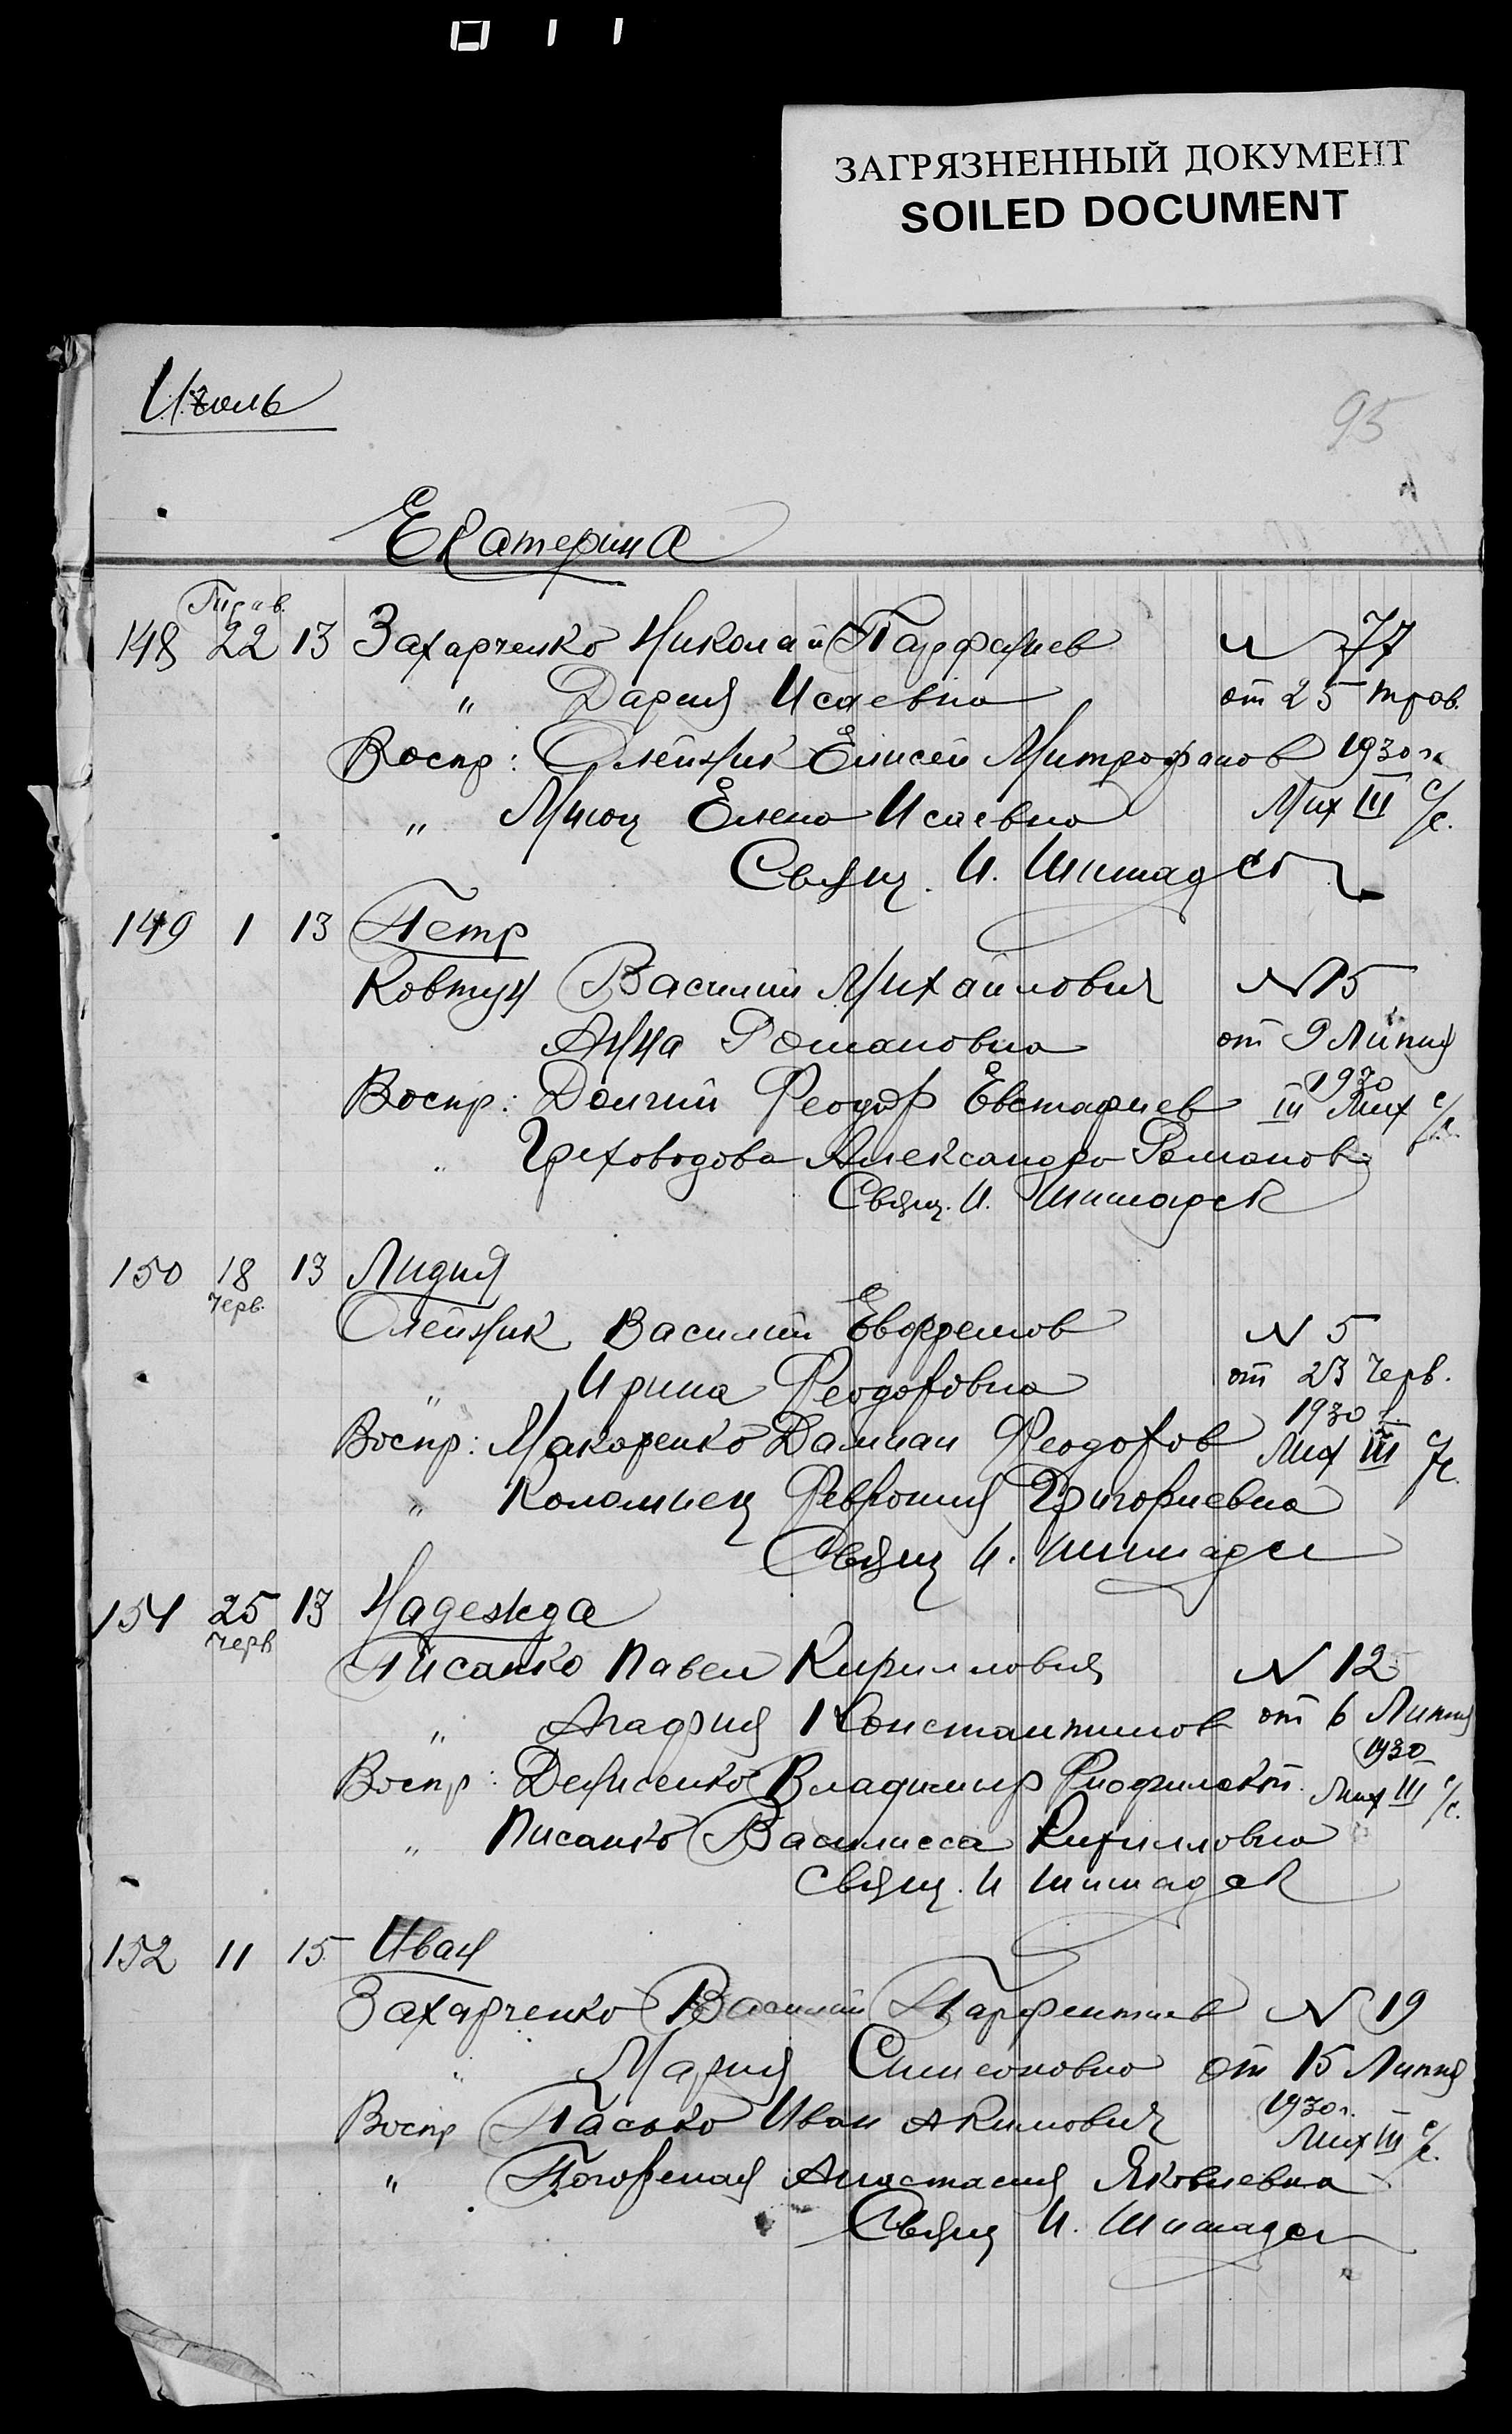 ЗАГРЯЗНЕННЫЙ ДОКУМЕНТ
SOILED DOCUMENT
Июль
95
Екатерина
Трав.
148 22 13 Захарченко Николай Парфениев N 77
" Дария Исаевна от 25 трав.
Воспр: Олейник Елисей Митрофанов 1930 г.
" Елена Исаевна Мих III с/с.
Свящ. И. Шишадск
149 1 13 Петр
Ковтун Василий Михайлович N 15
Анна Романовна от 9 Липня
1930
Воспр: Долгий Феодор Евстафиев III Мих с/с.
" Греховодова Александра Романов
Свящ. И. Шишадск
150 18 13 Лидия
Черв.
Олейник Василий Евфремов N 5
" Ирина Феодоровна от 23 Черв.
1930 г.
Воспр: Макоренко Дамиан Феодоров Мих III с/с.
" Коломиец Феврония Григориевна
Свящ И. Шишадск
151 25 13 Надежда
Черв
Писанко Павел Кириллович N 12
" Агафия Константинов от 6 Липня
1930
Воспр: Денисенко Владимир Мих III с/с.
" Писанко Василисса Кирилловна
Свящ. И Шишадск
152 11 15 Иван
Захарченко Василий Парфентиев N 19
" Мария Симеоновна от 15 Липня
1930 г.
Воспр Пасько Иван Акимович Мих III с/с.
" Погорелая Анастасия Яковлевна
Свящ И. Шишадск